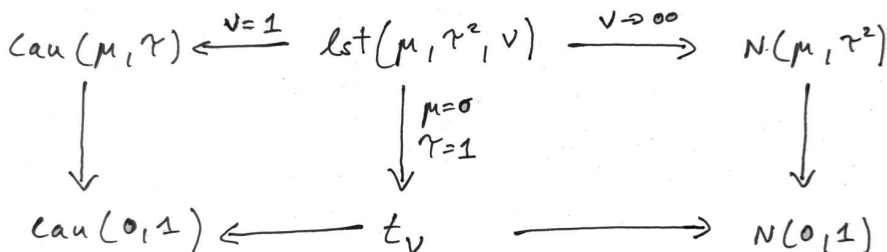 Cau(μ, τ) ←ν=1— lst(μ, τ², ν) —ν→∞→ N(μ, τ²)
μ=0
τ=1
Cau(0, 1) ← t_ν → N(0, 1)